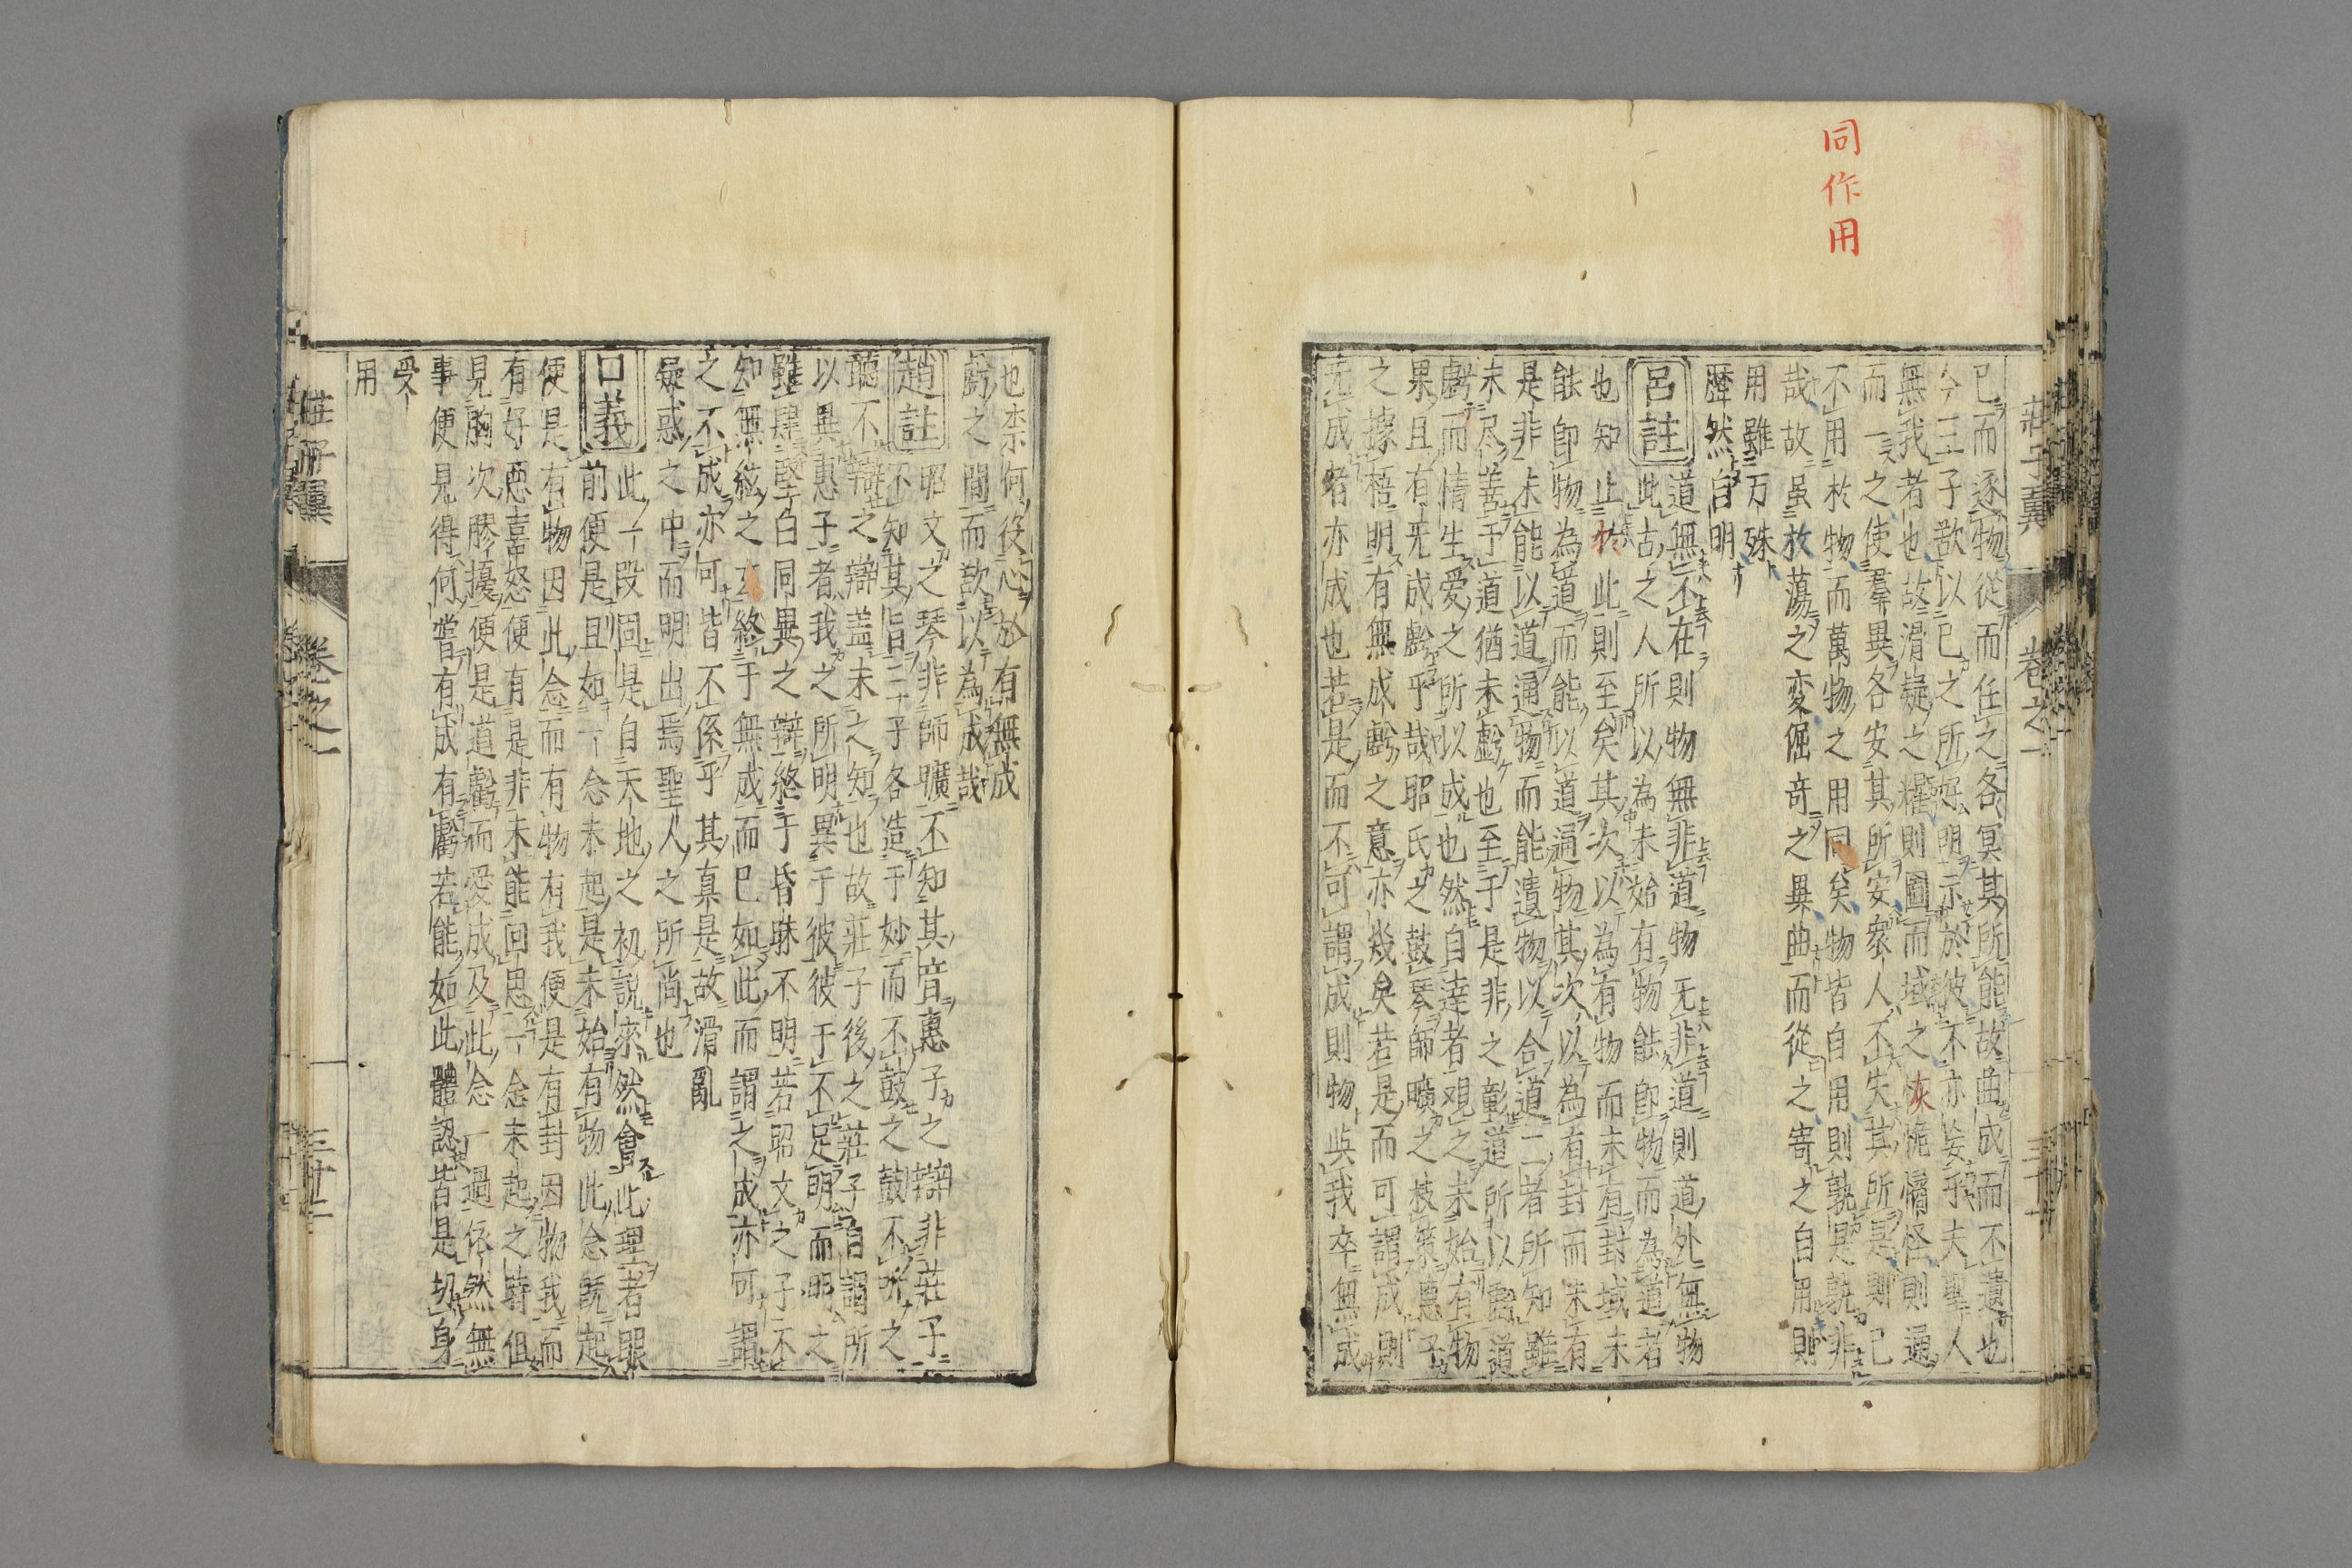 同作用
莊子翼
卷之一
三十一
已而逐物從而任之各冥其所能故曲成而不遺也
今三子欲以已之所好明示於彼不亦妄乎夫聖人
無我者也故滑疑之耀則圖而域之恢恑憰怪則通
而一之使羣異各安其所安衆人不失其所是則已
不用於物而萬物之用同矣物皆自用則孰是孰非
哉故虽放蕩之变倔竒之異曲而從之寄之自用則
用雖万殊
歷然自明
呂註
道無不在則物無非道物无非道則道外無物
此古之人所以為未始有物能即物而為道者
也知止於此則至矣其次以為有物而未有封域未
能即物為道而能以道通物其次以為有封而未有
是非未能以道通物而能遺物以合道二者所知雖
未尽善于道猶未虧也至于是非之彰道所以虧道
虧而情生愛之所以成也然自達者观之未始有物
果且有旡成虧乎哉昭氏之鼓琴師曠之枝策惠子
之據梧明有無成虧之意亦幾矣若是而可謂成則
无成者亦成也若是而不可謂成則物與我卒無成
也柰何役心於有無成
虧之間而欲以為成哉
趙註
昭文之琴非師曠不知其音惠子之辯非莊子
不知其旨二子各造于妙而不鼓之鼓不听之
聽不辯之辯盖未之知也故莊子後之莊子自謂所
以異惠子者我之所明異于彼彼于不足明而明之
雖肆堅白同異之辯終于昏昧不明若昭文之子不
知無絃之玄終于無成而已如此而謂之成亦可謂
之不成亦何皆不係乎其真是故滑亂
疑惑之中而明出焉聖人之所尚也
口義
此一段固是自天地之初說來然會此理者眼
前便是且如一念未起是未始有物此念既起
便是有物因此念而有物有我便是有封因物我而
有好惡喜怒便有是非未能回思一念未起之時但
見胸次膠擾便是道虧而愛成及此念一過依然無
事便見得何嘗有成有虧若能如此體認皆是切身
受
用
莊子翼
卷之一
三十二